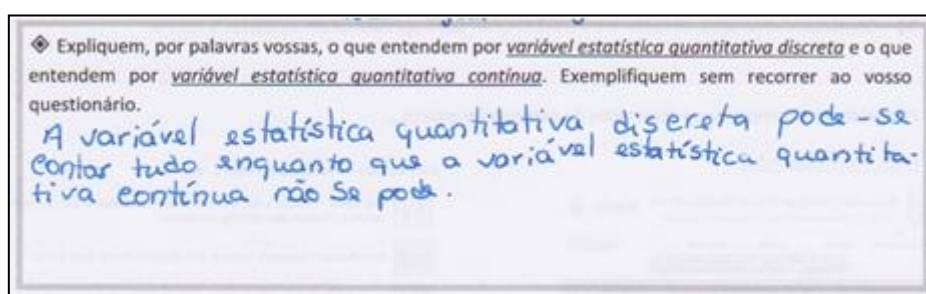 ◈ Expliquem, por palavras vossas, o que entendem por variável estatística quantitativa discreta e o que
entendem por variável estatística quantitativa contínua. Exemplifiquem sem recorrer ao vosso
questionário.
A variável estatística quantitativa discreta pode-se
contar tudo enquanto que a variável estatística quantita-
tiva contínua não se pode.